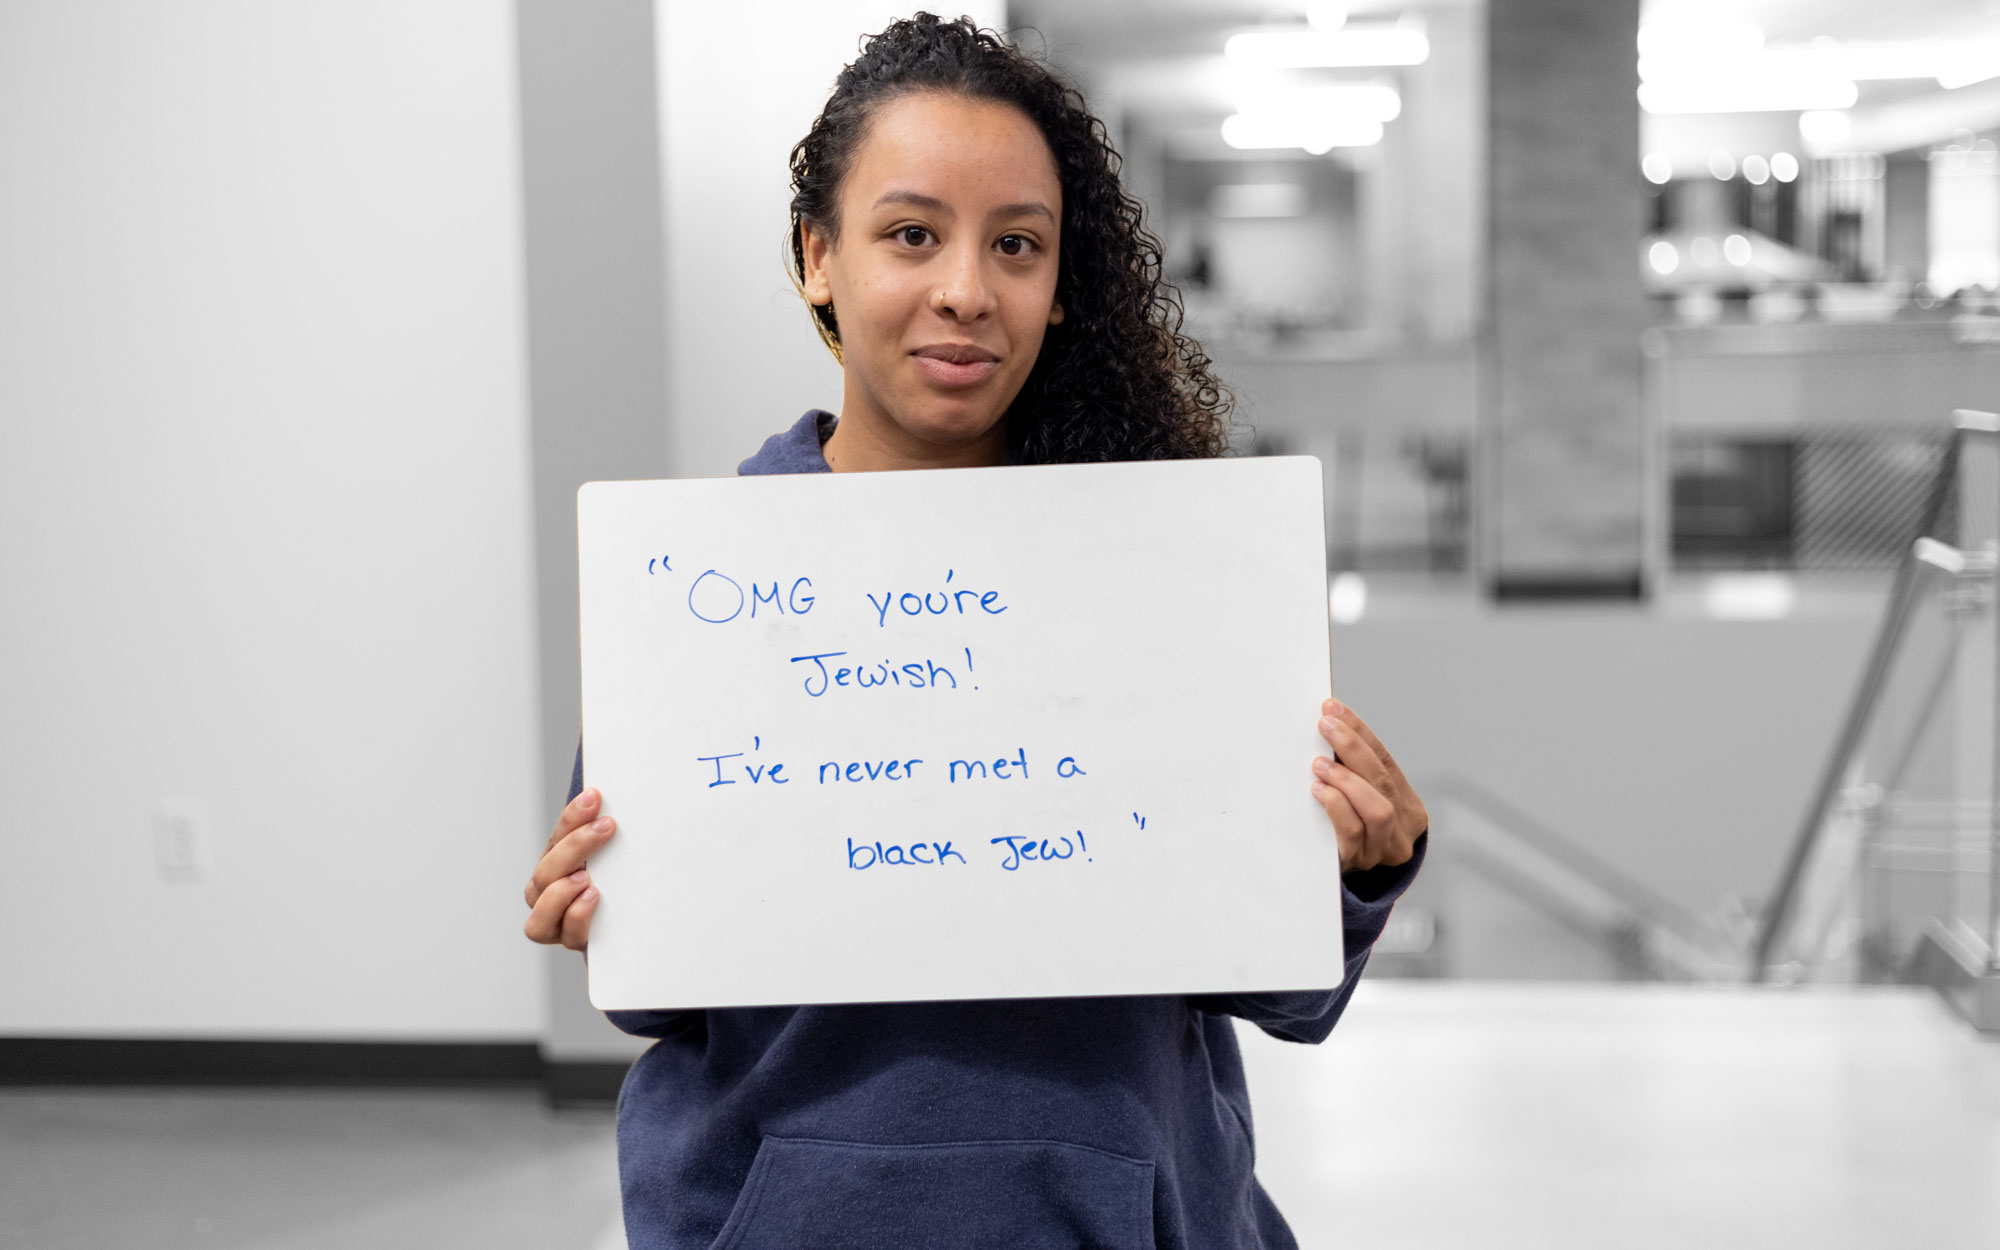 “OMG you're
Jewish!
I've never met a
black Jew!”